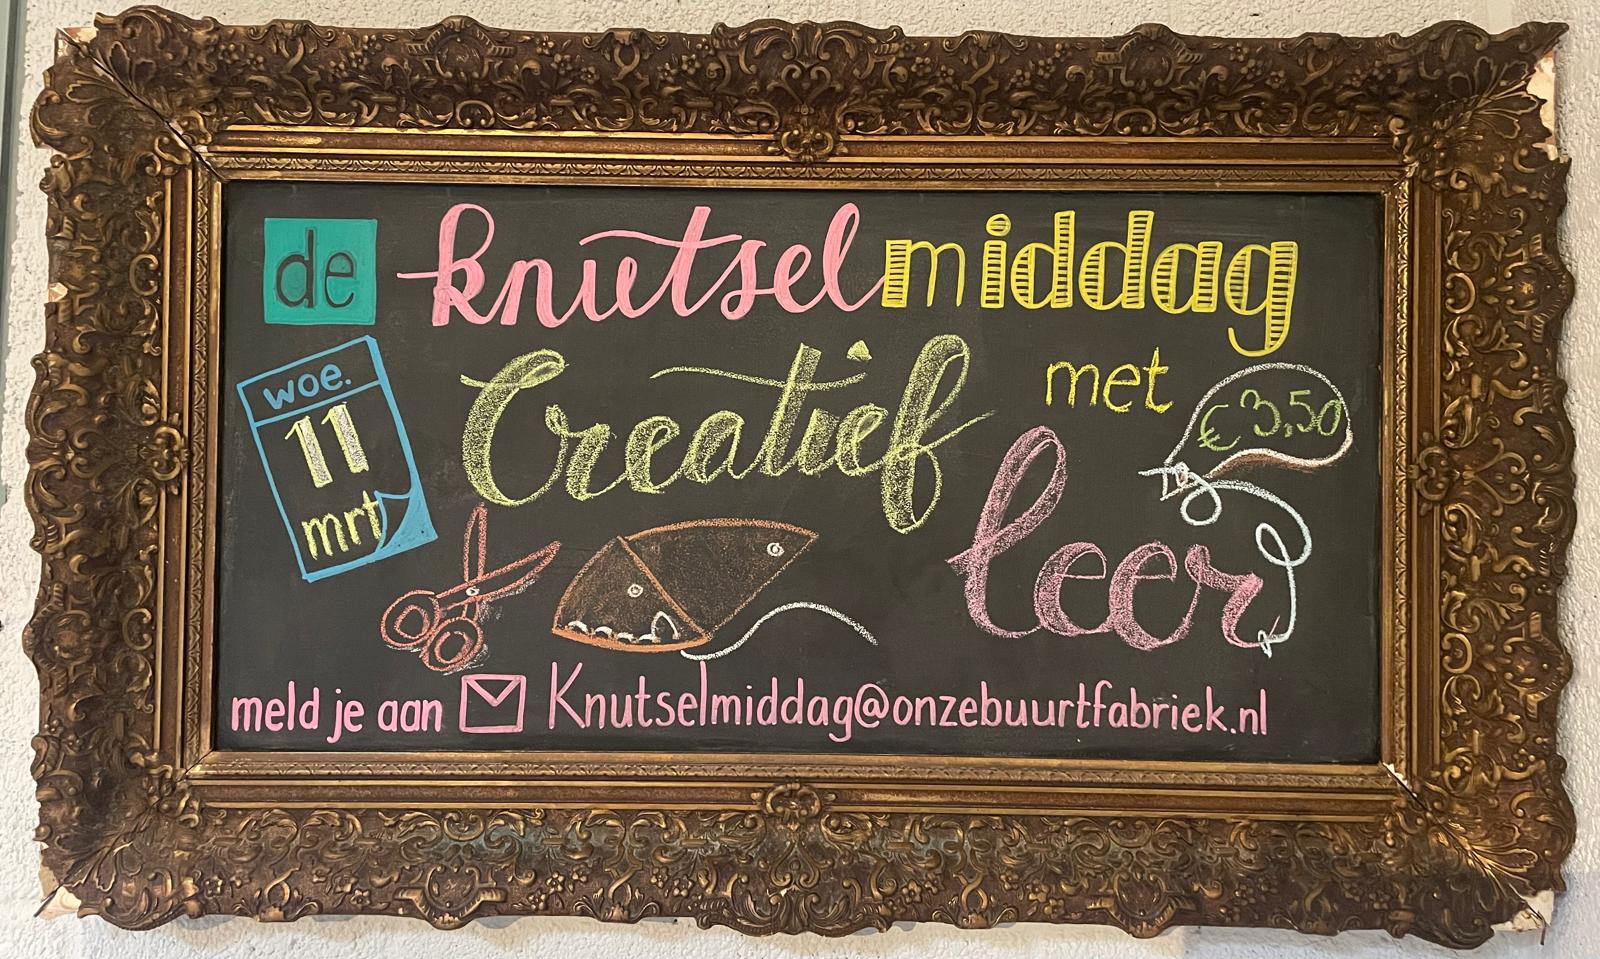 de knutselmiddag
woe.
11
mrt
Creatief
met
€ 3,50
leer
meld je aan Knutselmiddag@onzebuurtfabriek.nl